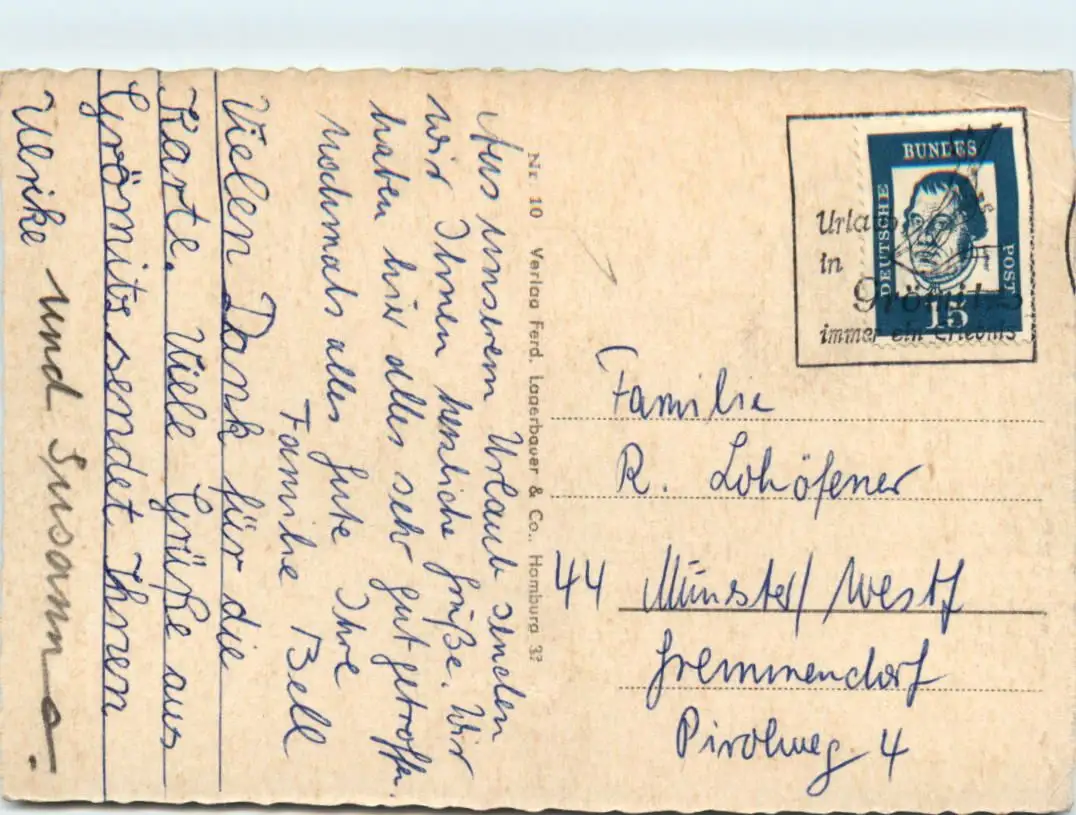 Aus unserem Urlaub senden
wir Ihnen herzliche Grüße. Wir
haben hier alles sehr gut getroffen.
Nochmals alles Gute Ihre
Familie Bell
Vielen Dank für die
Karte. Viele Grüße aus
Grömitz sendet Ihnen
Ulrike und Susanne.
Nr. 10 Verlag Ferd. Lagerbauer & Co., Hamburg 37
DEUTSCHE BUNDES POST
15
Urlaub
in
Grömitz
immer ein Erlebnis
Familie
R. Lohöfener
44 Münster/Westf
Gremmendorf
Pirolweg 4